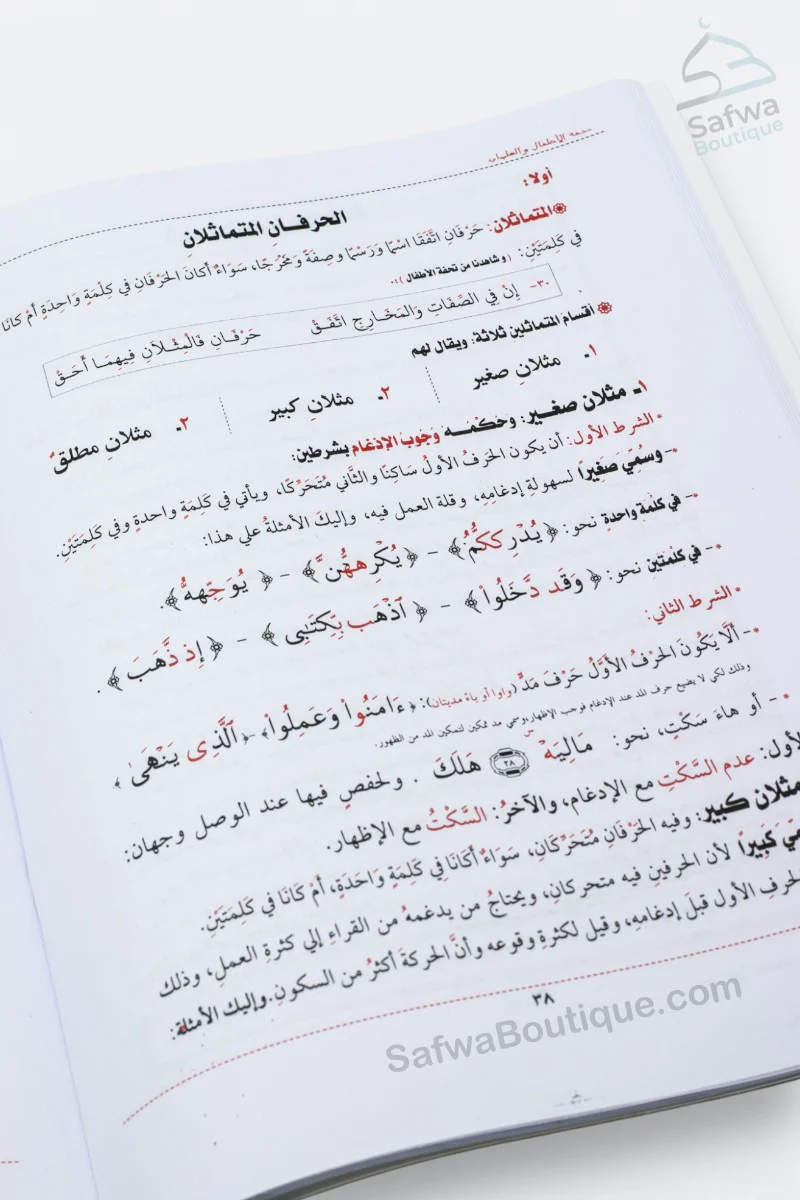 Safwa
Boutique
تحفة الأطفال والغلمان
أولا:
الحرفـانِ المتماثلانِ
المتماثلان: حَرْفَانِ اتَّفَقَا اسْمًا وَرَسْمًا وصِفَةً وَمَخْرَجًا، سَوَاءٌ أَكَانَ الحَرْفَانِ فِي كَلِمَةٍ وَاحِدَةٍ أَمْ كَانَا
فِي كَلِمَتَيْنِ: (وشاهدنا من تحفة الأطفال):
٣٠- إِنْ فِي الصِّفَاتِ وَالمَخَارِجِ اتَّفَقْ حَرْفَانِ فَالْمِثْلَانِ فِيهِمَا أَحَقْ
أقسام المتماثلين ثلاثة: ويقال لهم
١ـ مثلانِ صغير ٢ـ مثلانِ كبير ٢ـ مثلانِ مطلق
١ـ مثلان صغـير: وحكمـه وجوب الإدغام بشرطين:
* الشرط الأول: أن يكون الحَرفُ الأولُ سَاكِنًا والثَّاني مُتَحَرِّكًا، ويأتي في كَلِمَةٍ واحدةٍ وفي كَلِمَتَيْنِ.
*- وسُمِّيَ صَغِيراً لسهولةِ إدغامِهِ، وقلة العمل فيه، وإليكَ الأمثلةُ علي هذا:
*- في كلمة واحدة نحو: ﴿يُدْرِككُّمُ﴾ – ﴿يُكْرِههُّنَّ﴾ – ﴿يُوَجِّههُّ﴾.
*- في كلمتين نحو: ﴿وَقَد دَّخَلُوا۟﴾ – ﴿ٱذْهَب بِّكِتَـٰبِى﴾ – ﴿إِذ ذَّهَبَ﴾.
* الشرط الثاني:
*- أَلَّا يَكُونَ الحَرْفُ الأَوَّلُ حَرْفَ مَدٍّ (واوا أو ياءً مديتان): ﴿ءَامَنُوا۟ وَعَمِلُوا۟﴾ ﴿ٱلَّذِى يَنْهَىٰ﴾
وذلك لكي لا يضيع حرف المد عند الإدغام فوجب الإظهار، وسمي مد تمكين لتمكين المد من الظهور.
*- أو هاءَ سَكْتٍ، نحو: مَالِيَهْۜ ٢٨ هَلَكَ . ولحفصٍ فيها عند الوصل وجهان:
لأول: عدم السَّكْتِ مع الإدغام، والآخرُ: السَّكْتُ مع الإظهار.
مثلان كبير: وفيه الحَرْفَانِ مُتَحَرِّكَانِ، سَوَاءٌ أَكَانَا فِي كَلِمَةٍ وَاحَدَةٍ، أَمْ كَانَا فِي كَلِمَتَيْنِ.
مِّيَ كَبِيراً لأن الحرفينِ فيه متحركانِ، ويحتاجُ من يدغمهُ من القراءِ إلي كثرةِ العملِ، وذلك
لحرفِ الأول قبلَ إدغامِهِ، وقيل لكثرةِ وقوعه وأنَّ الحركةَ أكثرُ من السكونِ. وإليك الأمثلة:
٣٨
SafwaBoutique.com